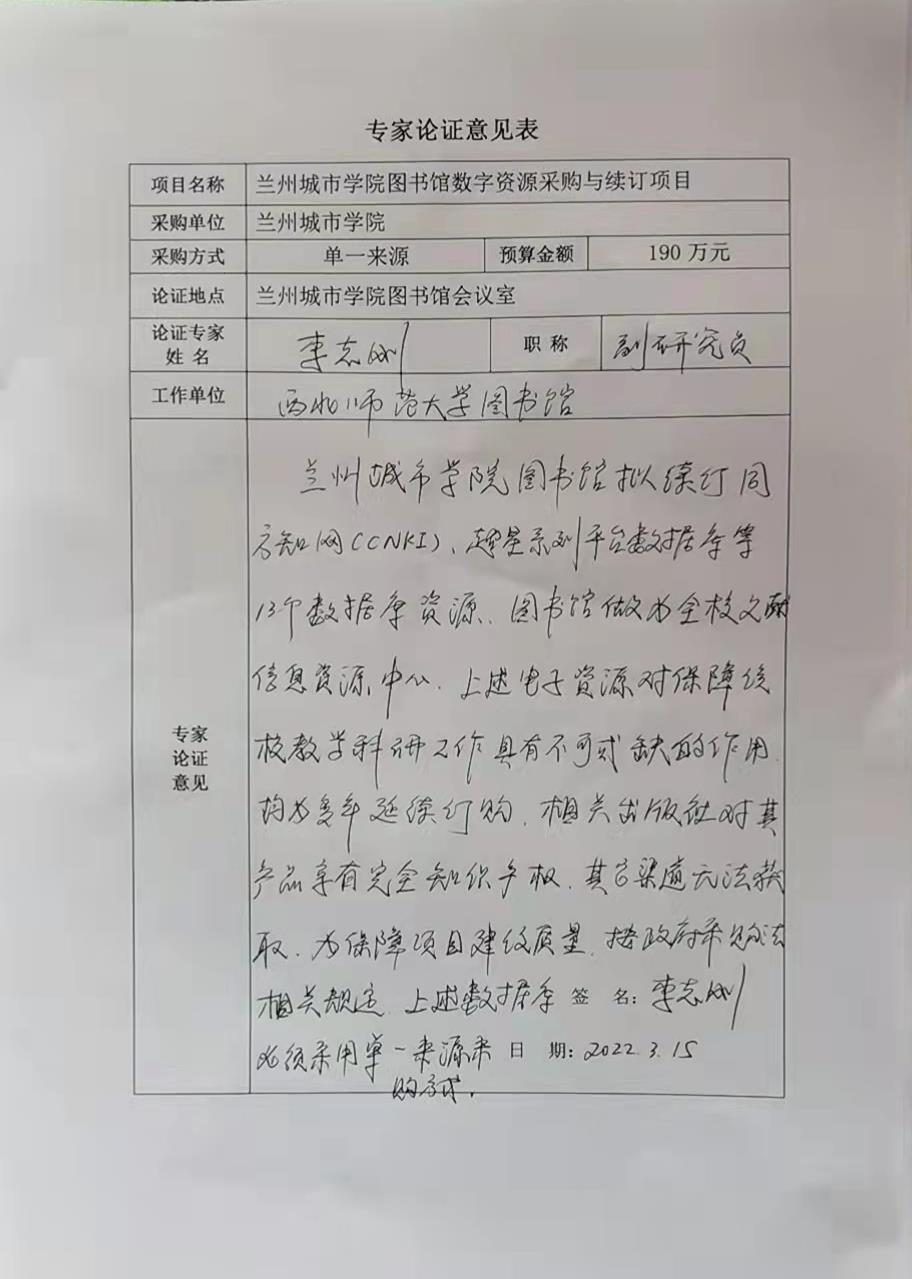 专家论证意见表
项目名称 兰州城市学院图书馆数字资源采购与续订项目
采购单位 兰州城市学院
采购方式 单一来源 预算金额 190万元
论证地点 兰州城市学院图书馆会议室
论证专家
姓名 李志刚 职称 副研究员
工作单位 西北师范大学图书馆
兰州城市学院图书馆拟续订同
方知网(CNKI)、超星系列平台数据库等
13个数据库资源、图书馆做为全校文献
信息资源中心、上述电子资源对保障
校教学科研工作具有不可或缺的作用
均为多年延续订购、相关出版社对其
产品享有完全知识产权、其它渠道无法获
取、为保障项目建设质量、按政府采购法
专家
论证
意见
相关规定、上述数据库 签 名：李志刚
必须采用单一来源采 日 期：2022.3.15
购方式.